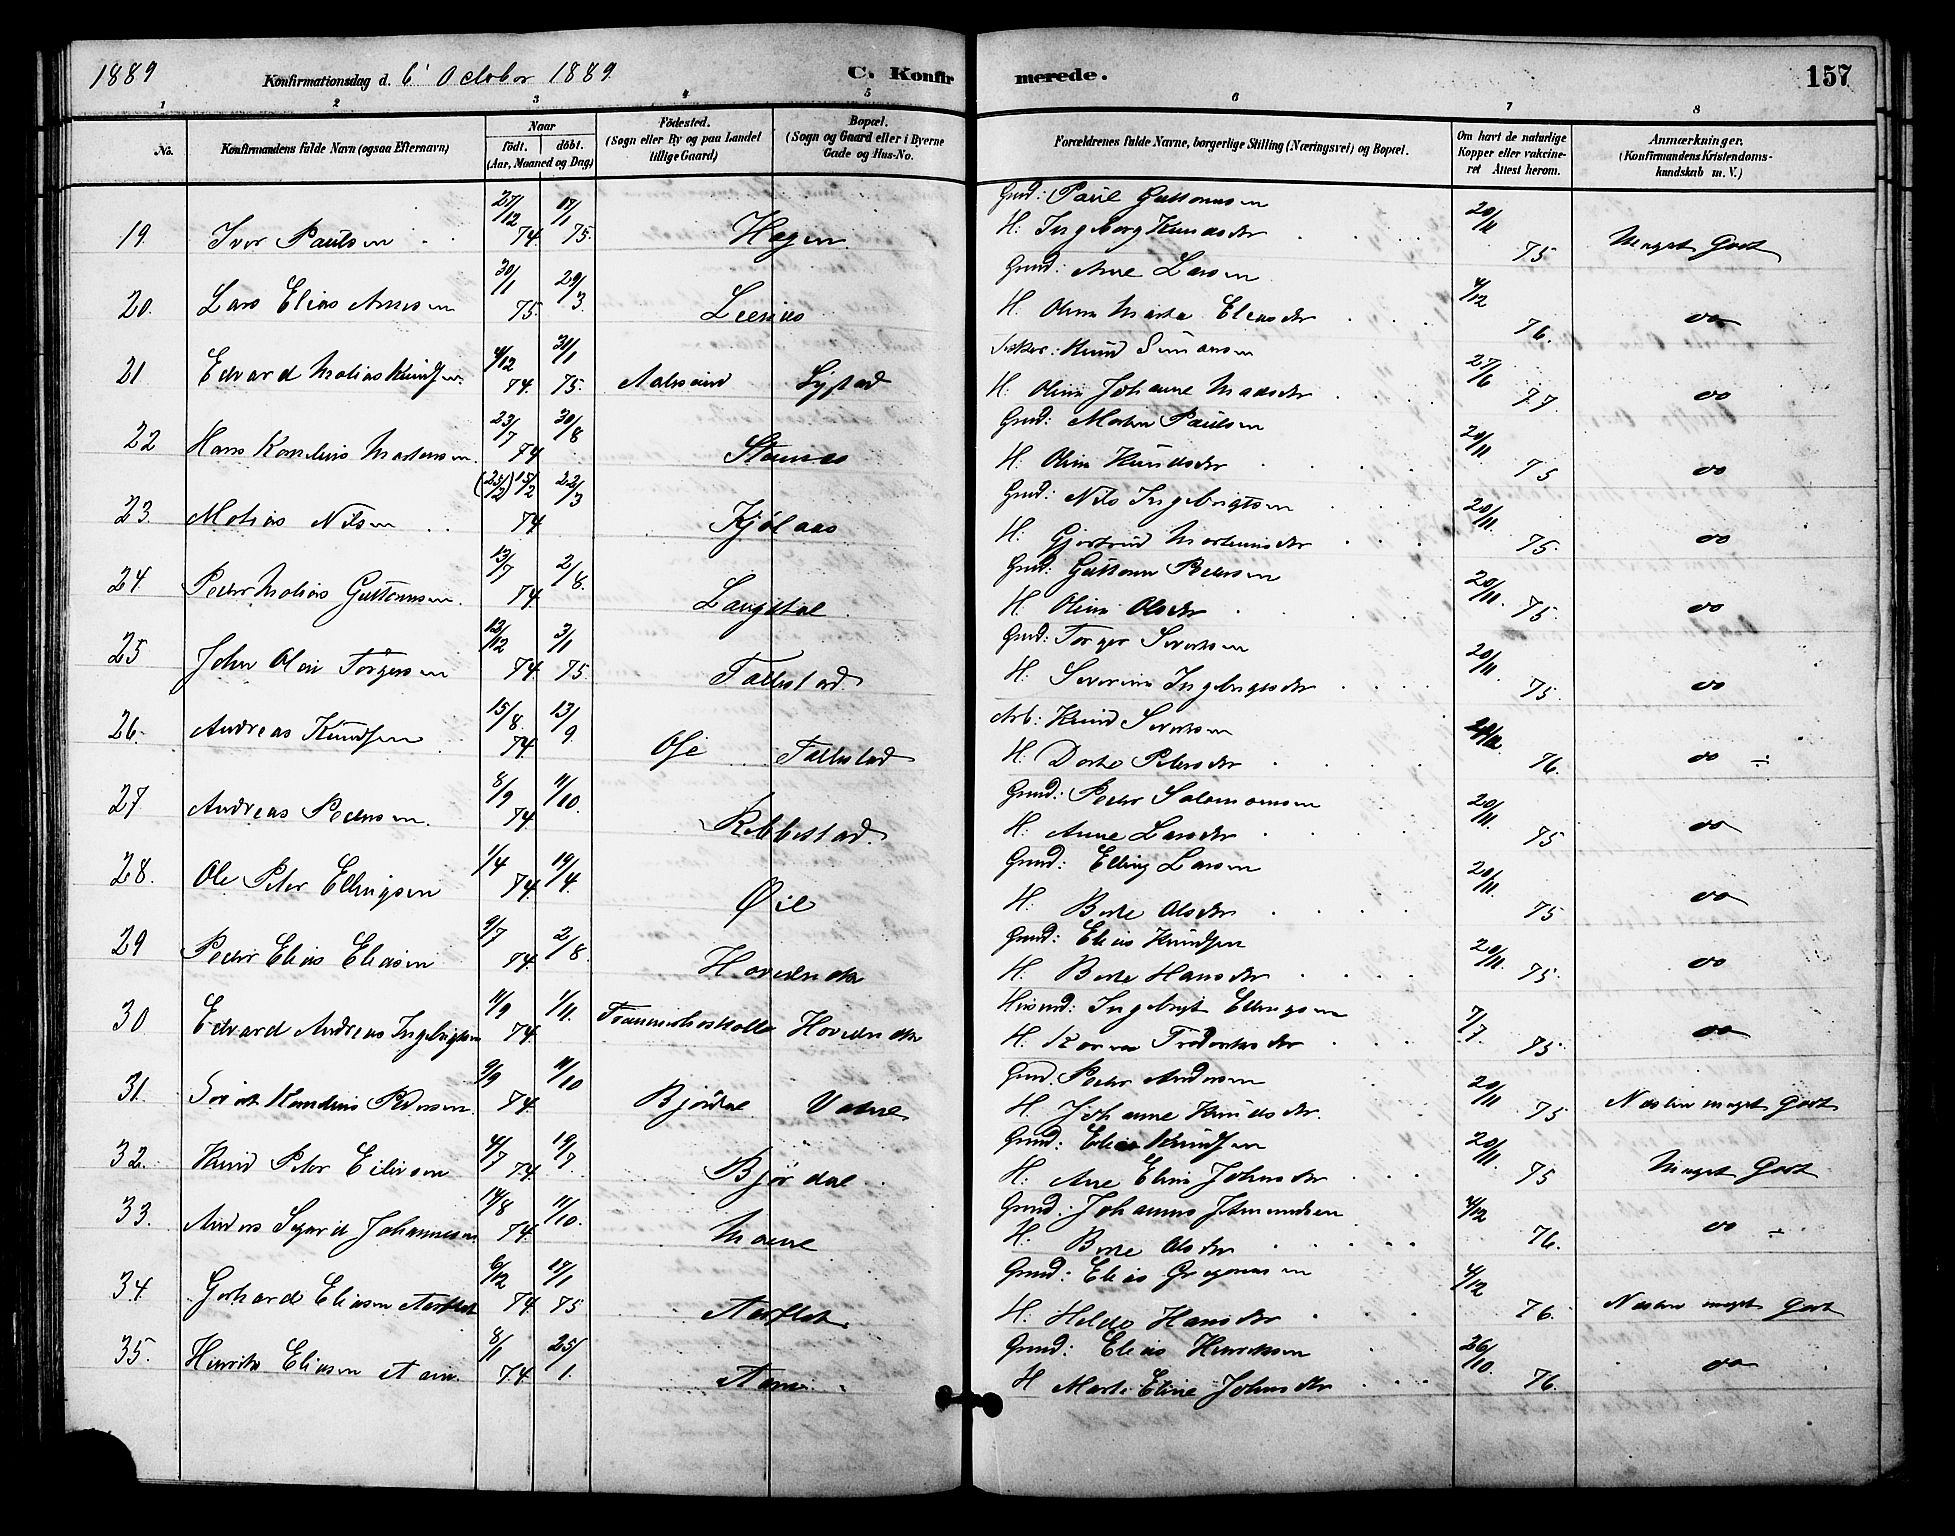 1889 Konfirmationsdag d. 6' October 1889. C. Konfirmerede. 157
1 2 3 4 5 6 7 8
No. Konfirmandens fulde Navn (ogsaa Efternavn) Naar født. døbt. (Aar, Maaned og Dag) Fødested. (Sogn eller By og paa Landet tillige Gaard) Bopæl. (Sogn og Gaard eller i Byerne Gade og Hus-No. Forældrenes fulde Navne, borgerlige Stilling (Næringsvei) og Bopæl. Om havt de naturlige Kopper eller vakcineret Attest herom. Anmærkninger. (Konfirmandens Kristendomskundskab m. V.)
19. Iver Paulsen 27/12 74. 17/1 75. Hagen Gmd: Paul Guttormsen H: Ingeborg Knudsdtr 20/11 75 Meget Godt
20. Lars Elias Arnesen 30/1 75. 29/3. Gmd: Arne Larsen H: Olina Marta Eliasdtr 4/12 76. do
21 Edvard Matias Knudsen 4/12 74. 31/1 75. Aalesund Knud Simonsen H: Olina Johanne Madsdtr 27/6 77. do
22 Hans Kornelius Martinsen 23/7 74. 30/8 Gmd: Morten Paulsen H: Olina Knudsdtr 20/11 75 do
23. Matias Nilsen (25/2) 15/2 74 22/3 Kjølaas Gmd: Nils Ingebrigtsen H: Gjertrud 20/11. 75. do
24 Peder Matias Guttormsen. 13/7 74. 2/8. Langdal Gmd: Guttorm Pedersen H: Olina Olsdtr 20/11. 75. do
25 John Olai Torgersen 13/12 74 3/1 75. Follestad Gmd: Torger Sivertsen H: Severine Ingebrigtsdtr 20/11 75. do
26. Andreas Knudsen 15/8. 74. 13/9. Ose Follestad Arb: Knud Sivertsen H: Dorte Petersdtr 76. do ÷
27. Andreas Pedersen. 8/9 74. 11/10. Rebbestad Gmd: Peder Salomonsen H: Anne Larsdtr 20/11. 75 do
28. Ole Peter Ellingsen 1/4 74. 19/4. Øie Gmd: Elling Larsen H: Berte Olsdtr 20/11. 75 do
29 Peder Elias Eliasen 9/7 74. 2/8. Gmd: Elias Knudsen H: Berte Hansdtr 20/11. 75. do
30 Edvard Andreas Ingebrigtsen 11/9 74. 1/11. Husmd: Ingebrigt Ellingsen H: Karen Frederiksdtr 7/7. 75. do
31. Sivert Kornelius Pedersen. 9/9 74. 11/10 Bjørdal Vatne Gmd. Peder Andersen H. Johanne Knudsdtr. 20/11 75 Næsten meget Godt
32. Knud Peter Eliasen 4/7 74. 19/7. Bjørdal Gmd: Elias Knudsen H: Ane Elina Johnsdtr 20/11. 75 Meget Godt
33. Anders Sigurd Johannesen. 14/8 74. 11/10. Moene Gmd. Johannes Amundsen H: Berte Olsdtr 4/12 76. do ÷
34. Gerhard Eliasen Aarflot 6/12 74. 17/1 75 Aarflot. Gmd: Elias Gregorisen H: Helde Hansdtr 4/12 76. Næsten meget Godt
35. Henrik Eliasen Aam. 8/1 74 25/1. Aam Gmd: Elias Henriksen H Marte Eline Johnsdtr 26/10. 76. do